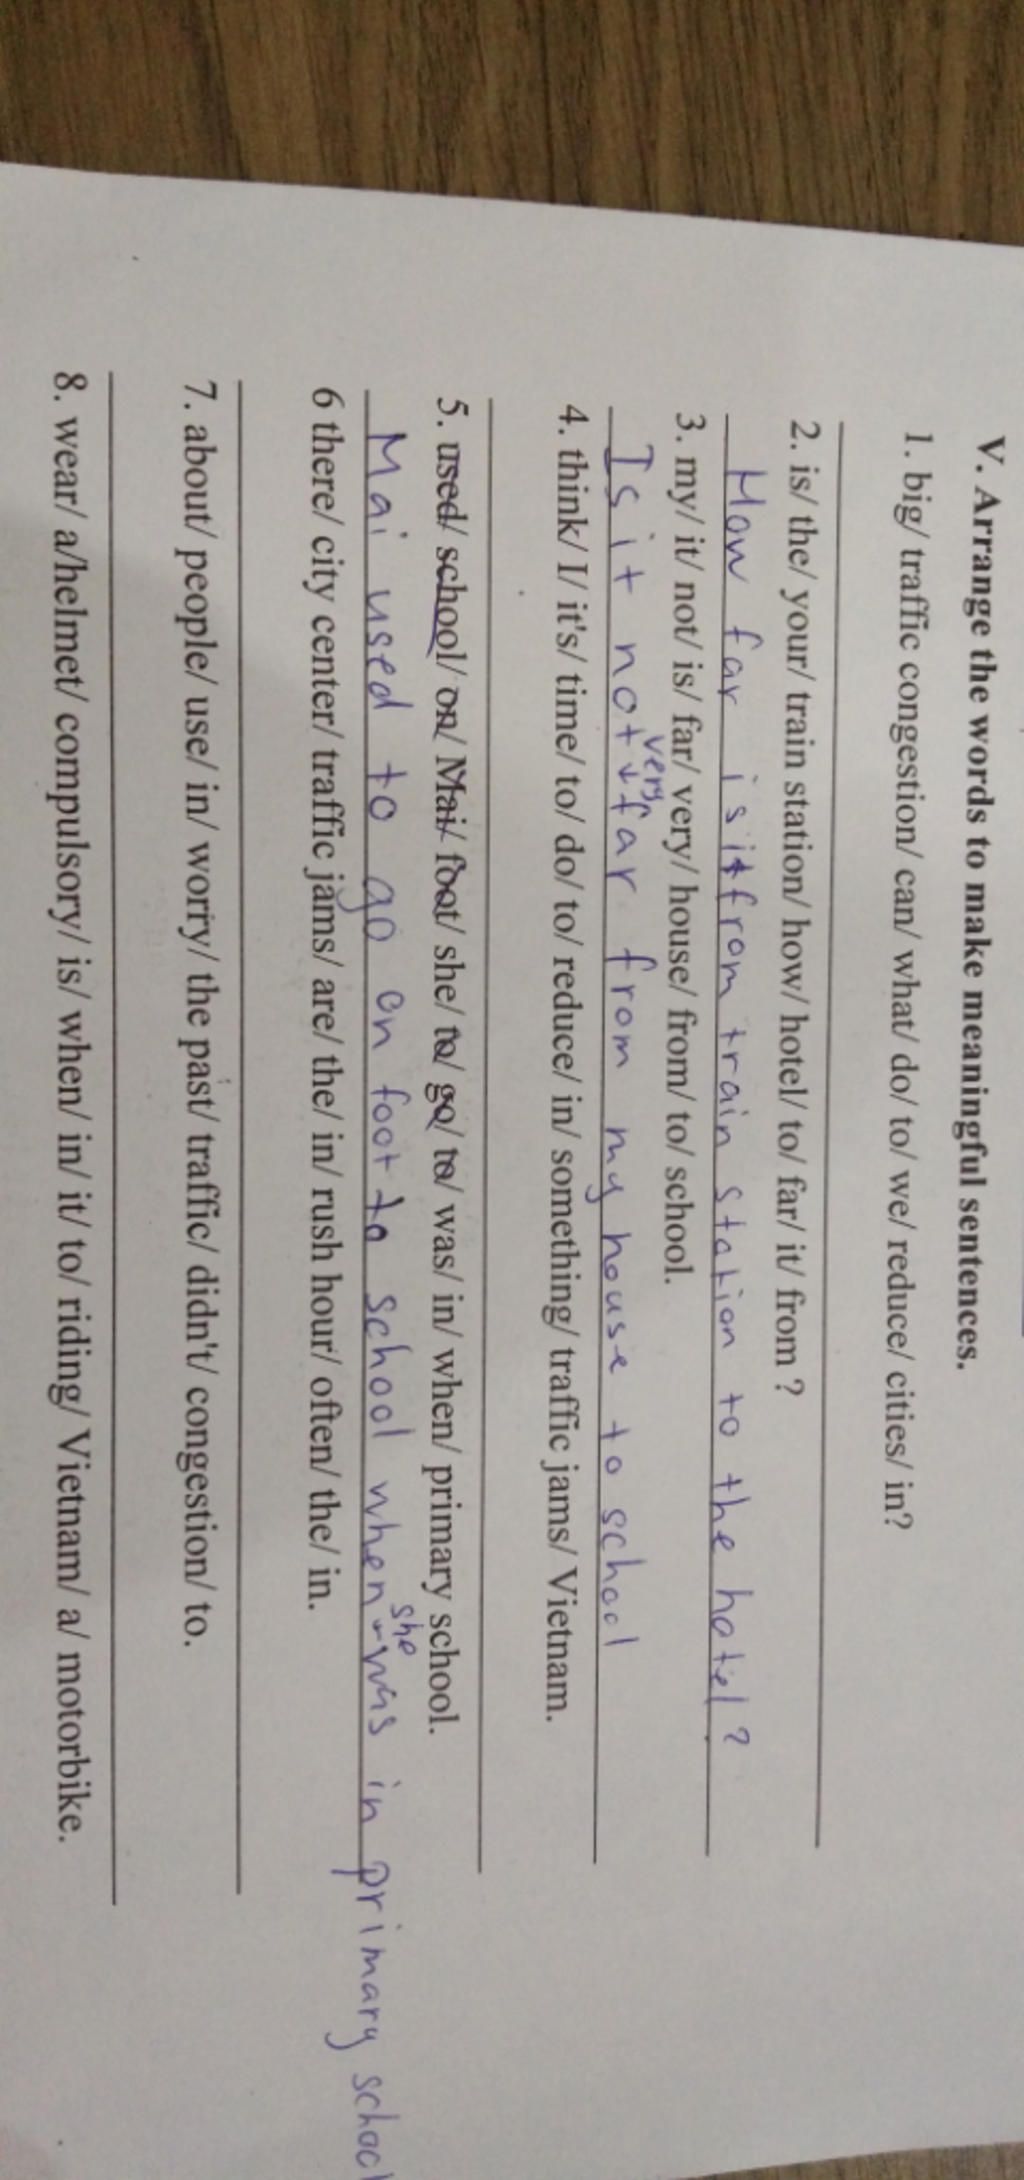 V. Arrange the words to make meaningful sentences.
1. big/ traffic congestion/ can/ what/ do/ to/ we/ reduce/ cities/ in?
2. is/ the/ your/ train station/ how/ hotel/ to/ far/ it/ from ?
How far is it from train station to the hotel?
3. my/ it/ not/ is/ far/ very/ house/ from/ to/ school.
very
Is it not far from my house to school
4. think/ I/ it's/ time/ to/ do/ to/ reduce/ in/ something/ traffic jams/ Vietnam.
5. used/ school/ on/ Mai/ foot/ she/ to/ go/ to/ was/ in/ when/ primary school.
she
Mai used to go on foot to school when was in primary school
6 there/ city center/ traffic jams/ are/ the/ in/ rush hour/ often/ the/ in.
7. about/ people/ use/ in/ worry/ the past/ traffic/ didn't/ congestion/ to.
8. wear/ a/helmet/ compulsory/ is/ when/ in/ it/ to/ riding/ Vietnam/ a/ motorbike.